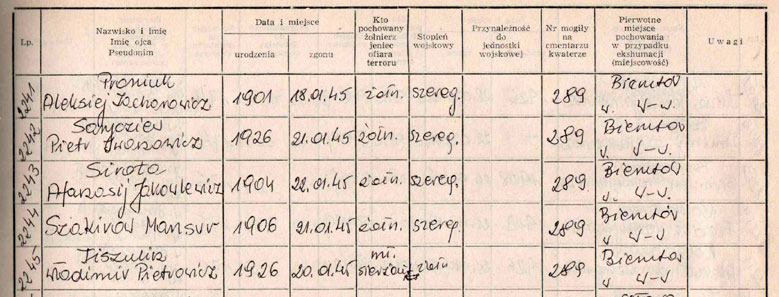 Lp.
Nazwisko i imię
Imię ojca
Pseudonim
Data i miejsce
urodzenia
zgonu
Kto
pochowany
żołnierz
jeniec
ofiara
terroru
Stopień
wojskowy
Przynależność
do
jednostki
wojskowej
Nr mogiły
na
cmentarzu
kwaterze
Pierwotne
miejsce
pochowania
w przypadku
ekshumacji
(miejscowość)
Uwagi
2241
Proniuk
Aleksiej Zacharowicz 1901 18.01.45 żołn. szereg. 289 Bienitów
v. V-v.
2242
Pietr 1926 21.01.45 żołn. szereg. 289 Bienitów
v. V-v
2243
Sirota
Afanasij Jakowlewicz 1904 22.01.45 żołn. szereg. 289 Bienitów
v. V-v.
2244
Szakirow Mansur 1906 21.01.45 żołn. szereg. 289 Bienitów
v. V-v
2245
Włodimir Pietrowicz 1926 20.01.45 mł. żołn 289 Bienitów
v. V-v